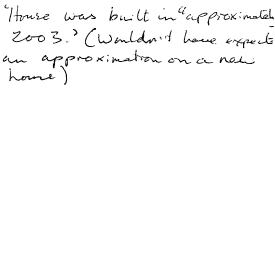 "House was built in "approximately
2003." (Wouldn't have expected
an approximation on a new
house)